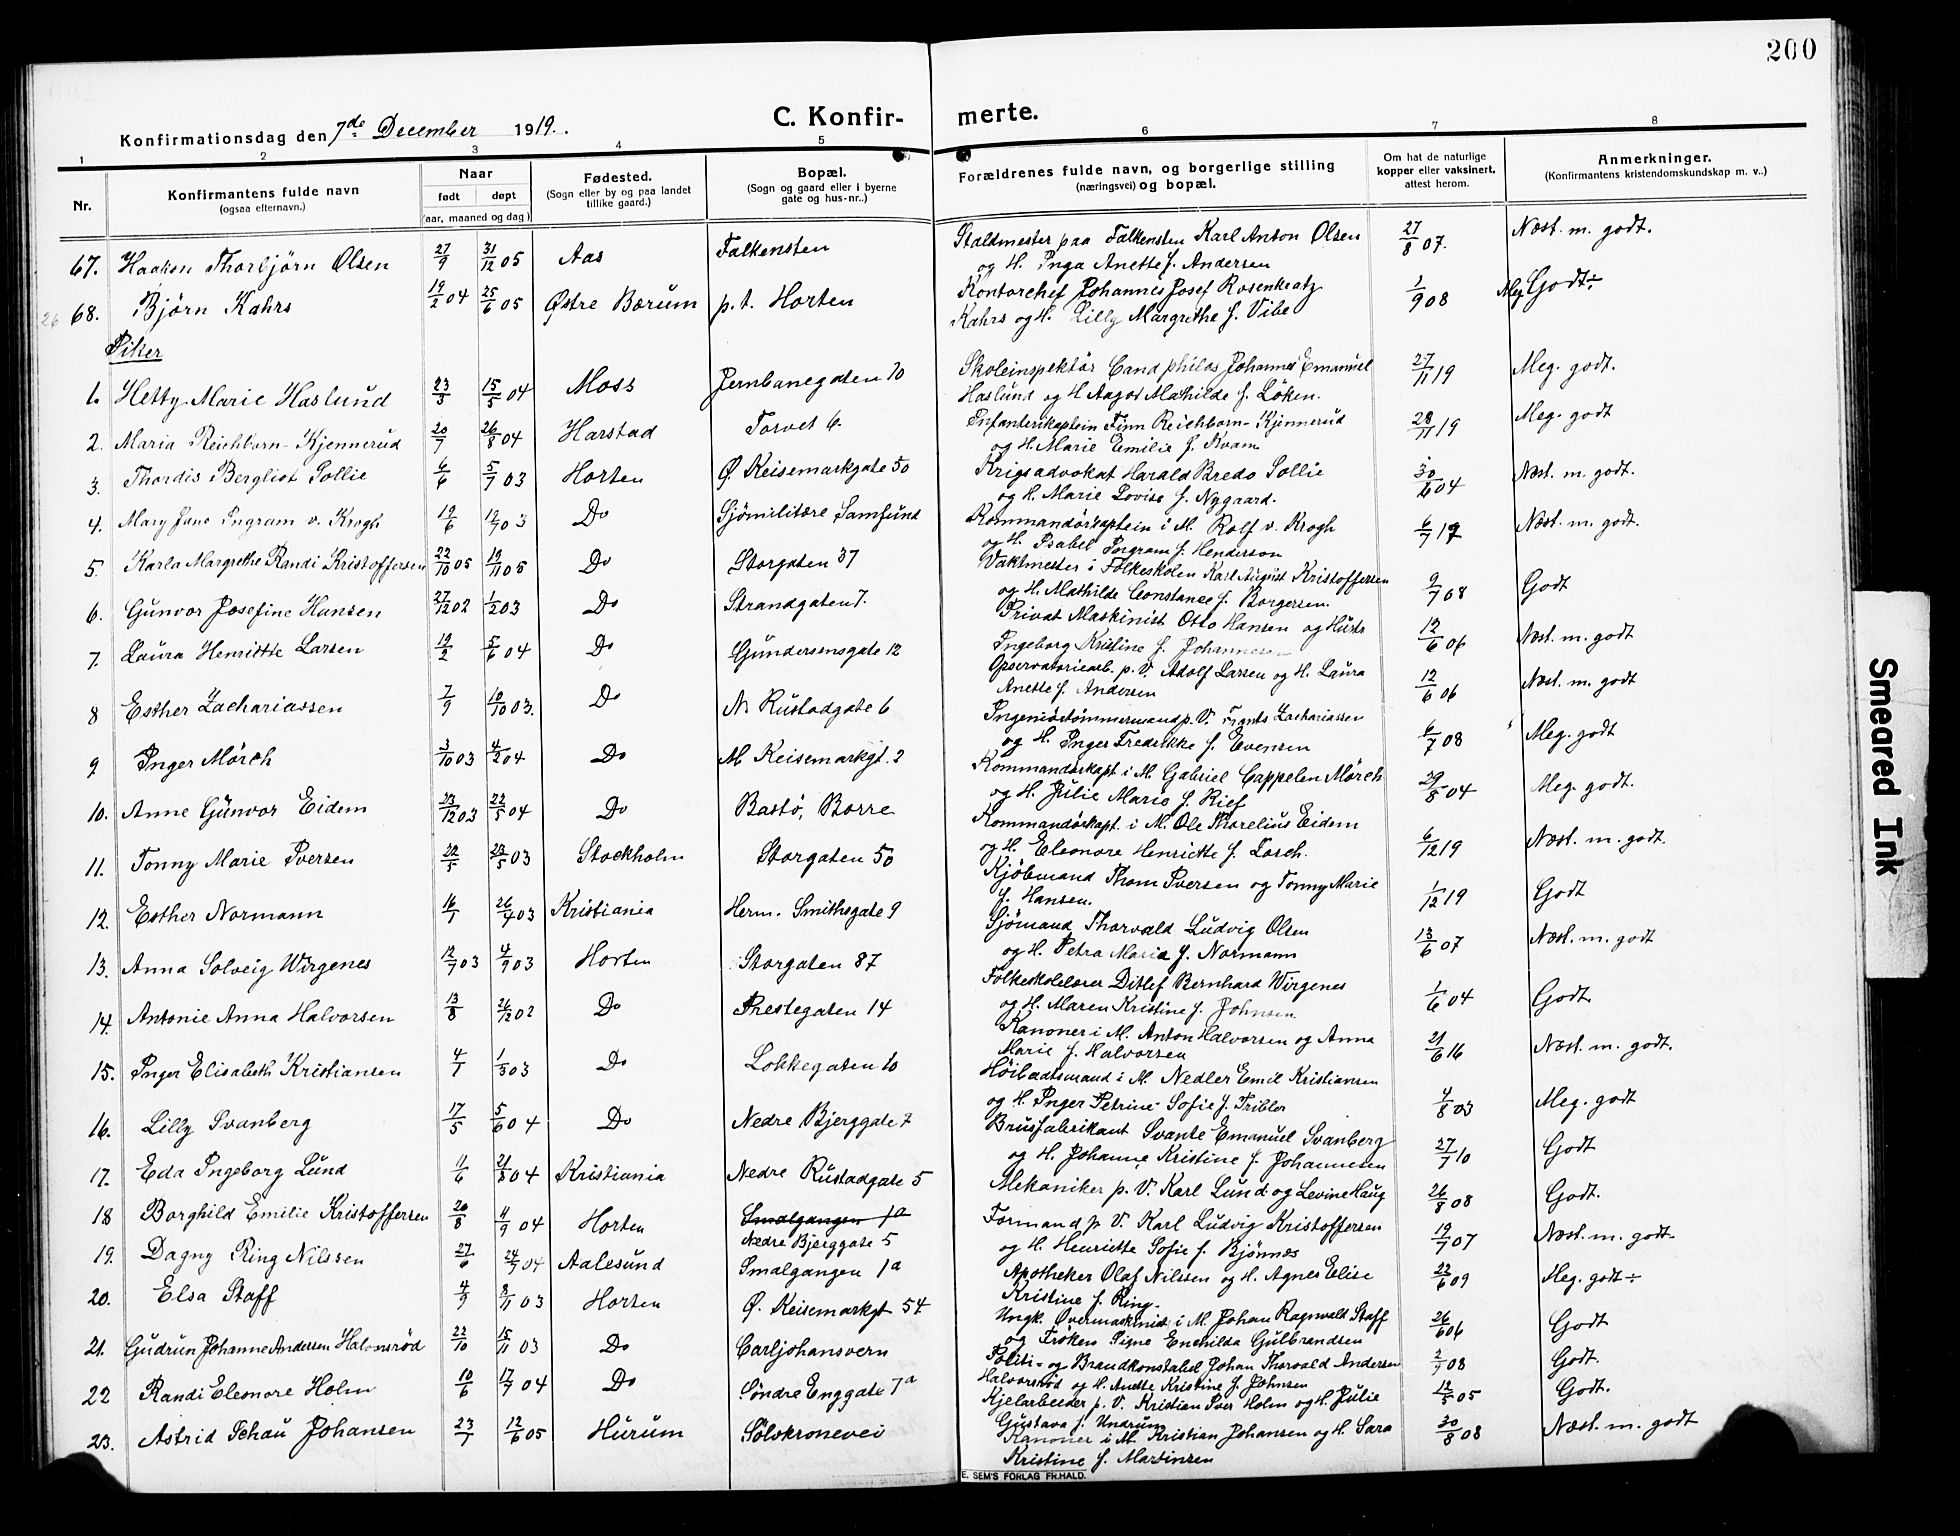 200
Konfirmationsdag den 7de December 1919.
C. Konfir- merte.
1 2 3 4 5 6 7 8
Nr.
Konfirmantens fulde navn
(ogsaa efternavn.)
Naar
født døpt
(aar, maaned og dag)
Fødested.
(Sogn eller by og paa landet
tillike gaard.)
Bopæl.
(Sogn og gaard eller i byerne
gate og hus-nr..)
Forældrenes fulde navn, og borgerlige stilling
(næringsvei) og bopæl.
Om hat de naturlige
kopper eller vaksinert,
attest herom.
Anmerkninger.
(Konfirmantens kristendomskundskap m. v..)
67. Haakon Thorbjörn Olsen 27/9 31/12 05 Aas Falkensten Staldmester paa Falkensten Karl Anton Olsen 27/8 07. Næst. m. godt.
og H. Inga Anette f. Andersen
26 68. Björn Kahrs 19/2 04 25/6 05 Østre Bærum p.t. Horten Kontorchef Johannes Josef Rosenkratz 1/9 08 Meg Godt÷
Kahrs og H. Lilly Margrethe f. Vibe
Piker
1. Hetty Marie Haslund 23/3 15/5 04 Moss Jernbanegaten 10 Skoleinspektör Cand philos Johannes Emanuel 27/11 19 Meg. godt.
Haslund og H Aagot Mathilde f. Löken.
2. Maria Reichborn-Kjennerud 20/7 26/8 04 Harstad Torvet 6. Infanterikaptein Finn Reichborn-Kjennerud 28/11 19 Meg. godt
og H. Marie Emilie f. Kvam
3. Thordis Bergliot Sollie 6/6 5/7 03 Horten Ø. Keisemarkgate 50 Krigsadvokat Harald Bredo Sollie 30/6 04 Næst. m. godt.
og H. Marie Lovise f. Nygaard.
4. Mary Jane Ingram v. Krogh 19/6 19/7 03 Do Sjömilitære Samfund Kommandörkaptein i M. Rolf v. Krogh 6/7 17 Næst. m. godt.
og H. Isabel Ingram f. Henderson
5. Karla Margrethe Randi Kristoffersen 22/10 05 19/11 05 Do Storgaten 37 Vaktmester i Folkeskolen Karl August Kristoffersen 9/7 08 Godt
og H. Mathilde Constance f. Borgersen.
6. Gunvor Josefine Hansen 27/12 02 1/2 03 Do Strandgaten 7. Privat Maskinist Otto Hansen og Hustr 12/6 06 Næst. m. godt
Ingeborg Kristine f. Johannesen
7. Laura Henriette Larsen 19/2 5/6 04 Do Gundersensgate 12 Opservatoriearb. p. V. Adolf Larsen og H. Laura 12/6 06 Næst. m. godt
Anette f. Andersen
8 Esther Zachariassen 7/9 10/10 03. Do N. Rustadgate 6 Ingeniørtømmermand p. V. Frants Zachariassen 6/7 08 Meg. godt
og H. Inger Fredrikke f. Evensen
9 Inger Mörch 3/10 03 4/2 04 Do M. Keisemarkgt. 2 Kommandørkapt i M. Gabriel Cappelen Mörch 29/8 04 Meg. godt.
og H. Julie Marie f. Rief
10. Anne Gunvor Eidem 23/12 03 22/5 04 Do Bastö, Borre Kommandørkapt. i M. Ole Thorelius Eidem 6/12 19 Næst. m. godt.
og H. Eleonore Henriette f. Losch.
11. Tonny Marie Iversen 22/5 23/5 03 Stockholm Storgaten 50 Kjöbmand Thom Iversen og Tonny Marie 1/12 19 Godt
f. Hansen.
12. Esther Normann 16/1 26/4 03 Kristiania Herm. Smithsgate 9 Sjömand Thorvald Ludvig Olsen 13/6 07 Næst. m. godt
og H. Petra Maria f. Normann
13. Anna Solveig Wirgenes 12/7 03 4/9 03 Horten Storgaten 87 Folkeskolelærer Ditlef Bernhard Wirgenes 1/6 04 Godt
og H. Maren Kristine f. Johnsen
14. Antonie Anna Halvorsen 13/8 26/12 02 Do Prestegaten 14 Kanoner i M. Anton Halvorsen og Anna 21/6 16 Næst. m. godt.
Marie f. Halvorsen
15. Inger Elisabeth Kristiansen 4/1 1/3 03 Do Lökkegaten 10 Höibaatsmand i M. Nedler Emil Kristiansen 4/8 03 Meg. godt
og H. Inger Petrine Sofie f. Tribler
16. Lilly Svanberg 17/5 5/6 04 Do Nedre Bjerggate 7 Brusfabrikant Svante Emanuel Svanberg 27/7 10 Godt
og H. Johanne Kristine f. Johannesen
17. Eda Ingeborg Lund 11/6 21/8 04 Kristiania Nedre Rustadgate 5 Mekaniker p. V. Karl Lund og Levine Haug 26/8 08 Godt.
18 Borghild Emilie Kristoffersen 20/8 4/9 04 Horten Smalgangen 1a Formand p. V. Karl Ludvig Kristoffersen 19/7 07 Næst. m. godt.
Nedre Bjerggate 5 og H. Henriette Sofie f. Bjönnes
19. Dagny Ring Nilssen 27/6 24/7 04 Aalesund Smalgangen 1a Apotheker Olaf Nilssen og H. Agnes Elise 22/6 09 Meg. godt÷
Kristine f. Ring.
20. Elsa Staff 4/9 8/11 03 Horten Ø. Keisemarkgt 54 Ungk. Overmaskinist i M. Johan Ragnvald Staff 26/6 06 Godt
og Fröken Signe Enehilda Gulbrandsen
21. Gudrun Johanne Andersen Halvorsröd 22/10 15/11 03 Do Carljohansvern Politi- og Brandkonstabel Johan Thorvald Andersen 2/7 08 Godt.
Halvorsröd og H. Anette Kristine f. Johnsen
22 Randi Eleonore Holm 10/6 17/7 04 Do Söndre Enggate 7a Kjelarbeider p. V. Kristian Iver Holm og H. Julie 12/5 05 Godt.
Gustava f. Undrum
23. Astrid Schau Johansen 23/7 12/6 05 Hurum Sölvkronevei Kanoner i M. Kristian Johansen og H. Sara 30/8 08 Næst. m. godt
Kristine f. Martinsen
E. SEM'S FORLAG FR.HALD.
Smeared Ink